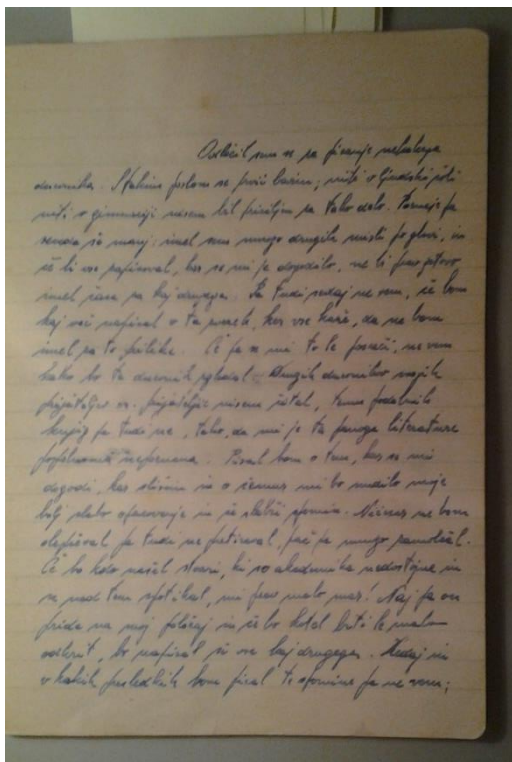 Odločil sem se za pisanje nekakega
dnevnika. S takim poslom se prvič bavim; niti v ljudski šoli
niti v gimnaziji nisem bil prijatelj za tako delo. Pozneje pa
seveda še manj: imel sem mnogo drugih misli po glavi, in
če bi vse zapisoval, kar se mi je dogodilo, ne bi prav gotovo
imel časa za kaj drugega. Pa tudi sedaj ne vem, če bom
kaj več napisal v ta zvezek, ker vse kaže, da ne bom
imel za to prilike. Če pa se mi to le posreči, ne vem
kako bo ta dnevnik zgledal. Drugih dnevnikov mojih
prijateljev oz. prijateljic nisem čital, temu podobnih
knjig pa tudi ne, tako, da mi je ta panoga literature
popolnoma nepoznana. Pisal bom o tem, kar se mi
dogodi, kar slišim in o čemur mi bo nudilo moje
bolj slabo opazovanje in še slabši spomin. Ničesar ne bom
olepšaval pa tudi ne pretiraval, pač pa mnogo zamolčal.
Če bo kdo našel stvari, ki so akademika nedostojne in
se nad tem spotikal, mi prav malo mar! Naj pa on
pride na moj položaj in če bo hotel biti le malo
odkrit, bo napisal še vse kaj drugega. Kedaj in
v kakih presledkih bom pisal te spomine pa ne vem;